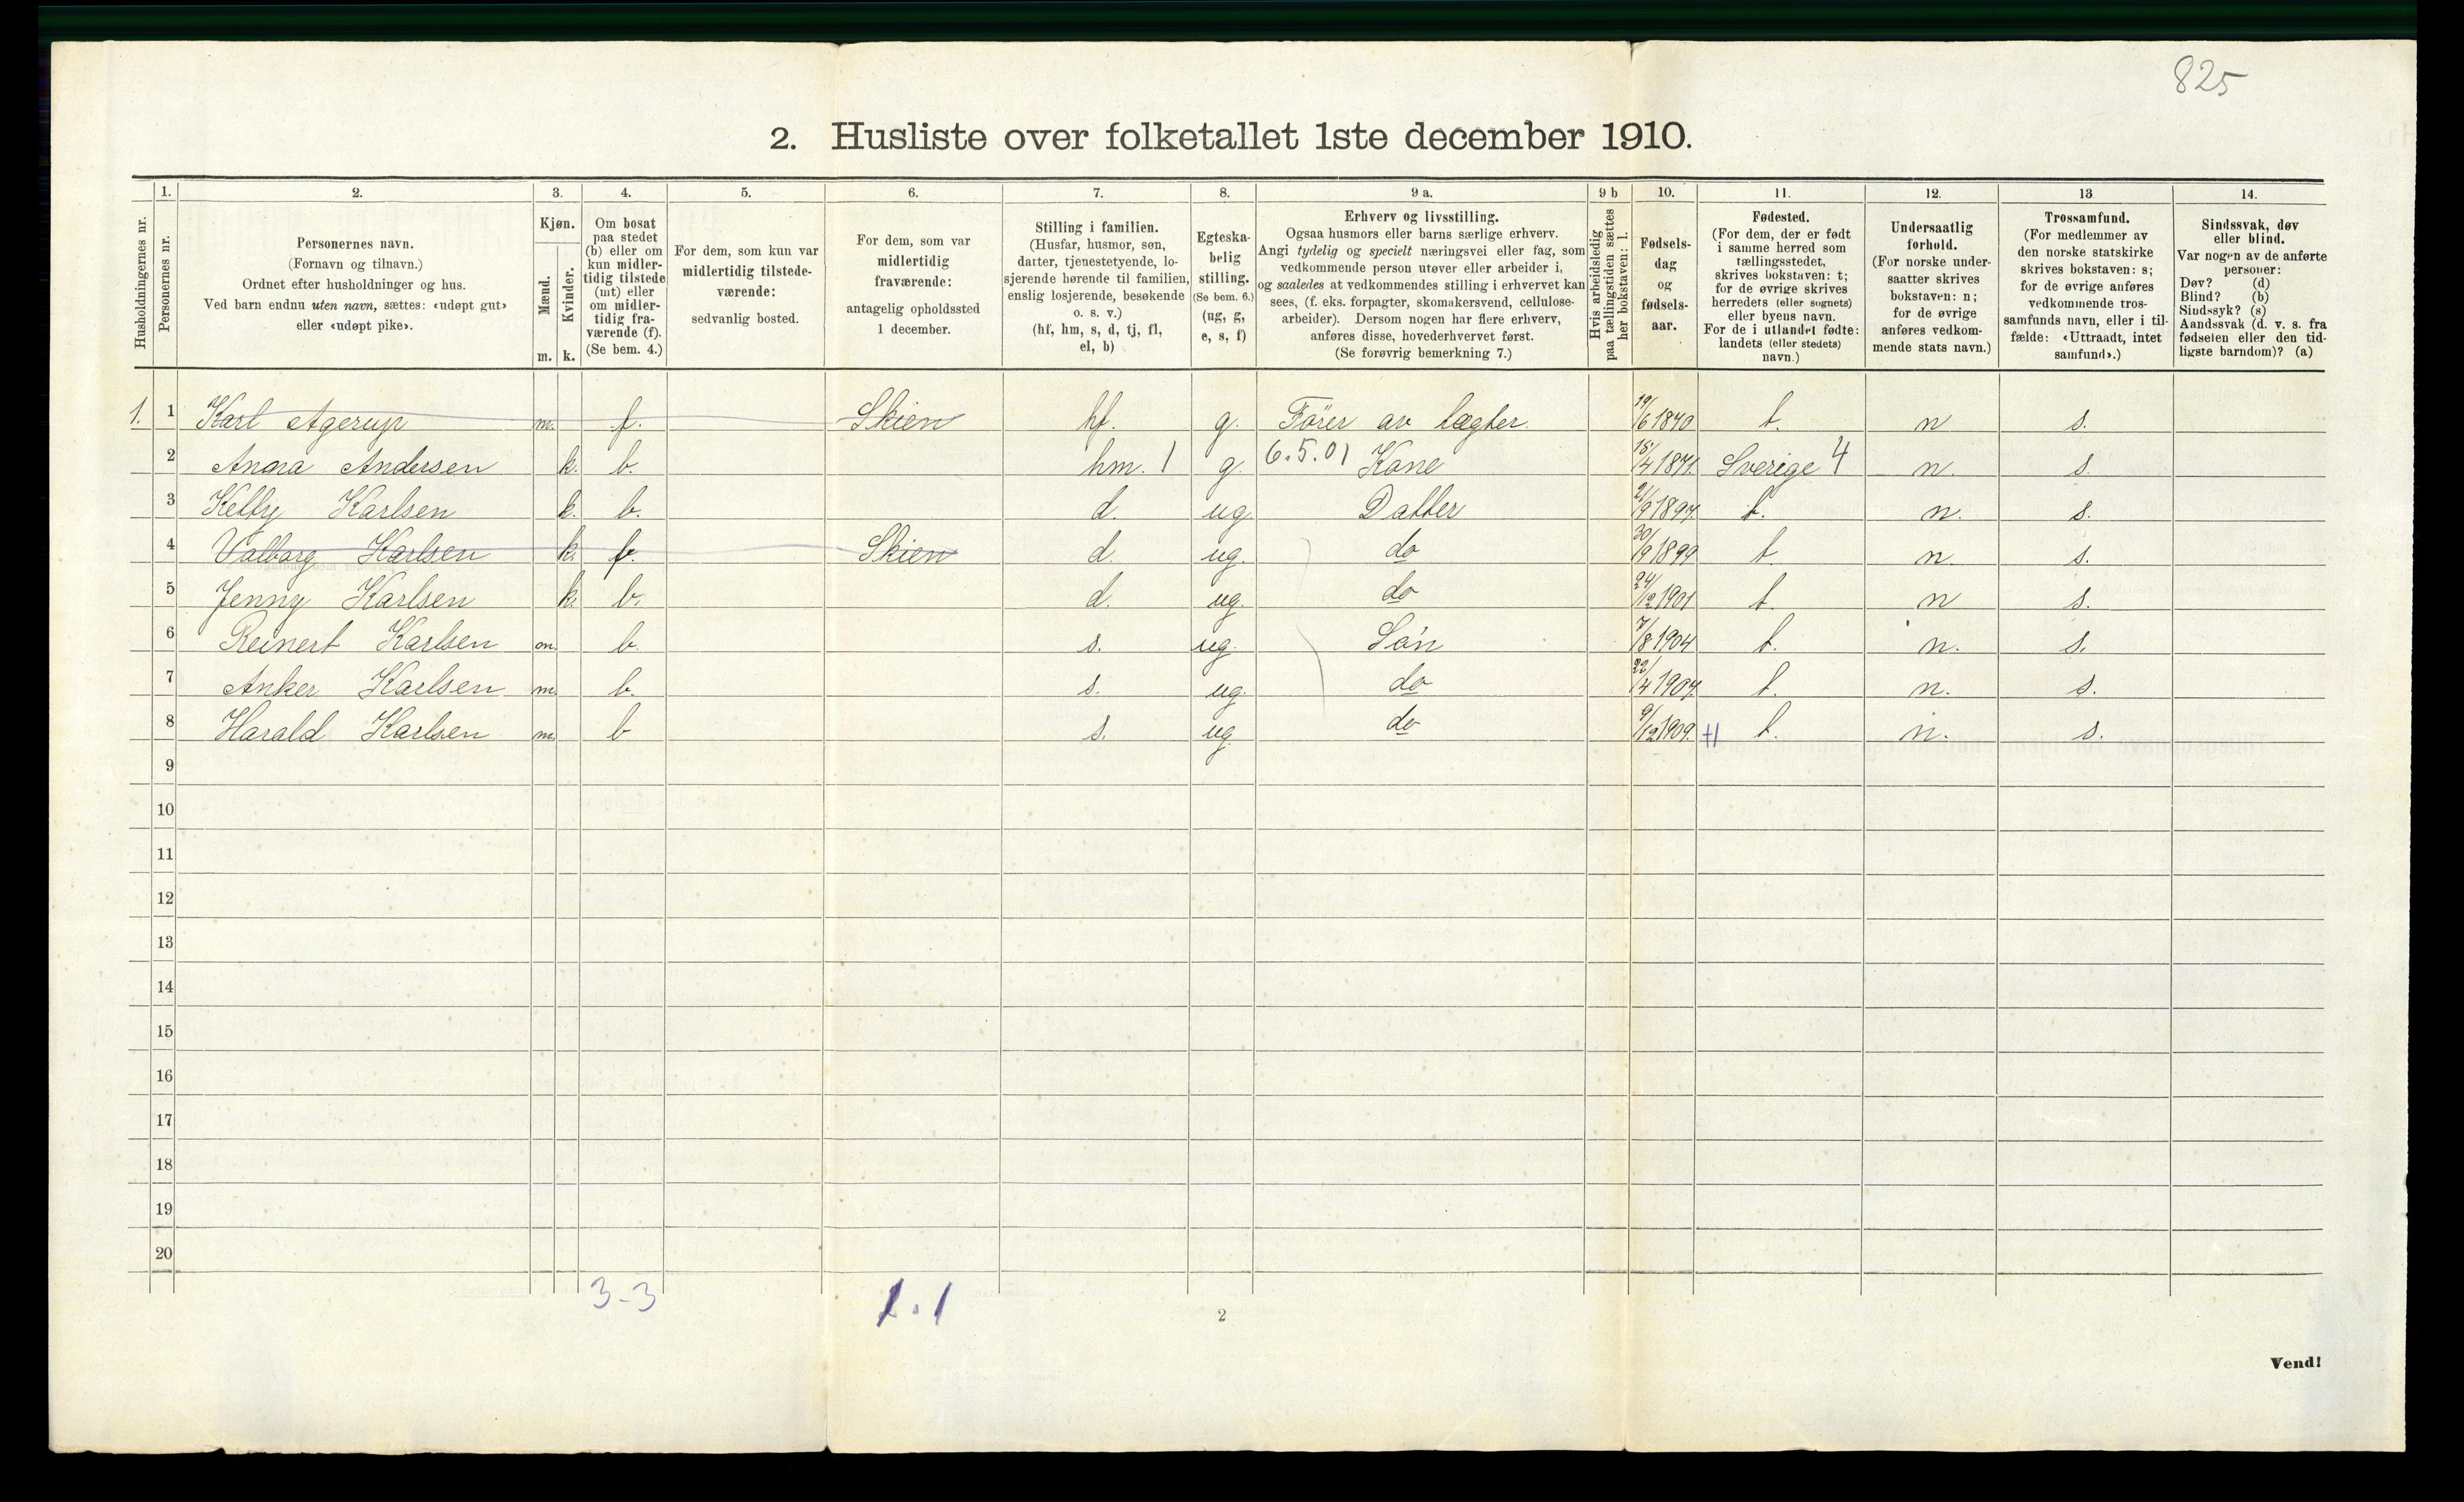 825
2. Husliste over folketallet 1ste december 1910.
Husholdningernes nr.
1.
Personernes nr.
2.
Personernes navn.
(Fornavn og tilnavn.)
Ordnet efter husholdninger og hus.
Ved barn endnu uten navn, sættes: «udøpt gut»
eller «udøpt pike».
3.
Kjøn.
Mænd.
m.
Kvinder.
k.
4.
Om bosat
paa stedet
(b) eller om
kun midler-
tidig tilstede
(mt) eller
om midler-
tidig fra-
værende (f).
(Se bem. 4.)
5.
For dem, som kun var
midlertidig tilstede-
værende:
sedvanlig bosted.
6.
For dem, som var
midlertidig
fraværende:
antagelig opholdssted
1 december.
7.
Stilling i familien.
(Husfar, husmor, søn,
datter, tjenestetyende, lo-
sjerende hørende til familien,
enslig losjerende, besøkende
o. s. v.)
(hf, hm, s, d, tj, fl,
el, b)
8.
Egteska-
belig
stilling.
(Se bem. 6.)
(ug, g,
e, s, f)
9 a.
Erhverv og livsstilling.
Ogsaa husmors eller barns særlige erhverv.
Angi tydelig og specielt næringsvei eller fag, som
vedkommende person utøver eller arbeider i,
og saaledes at vedkommendes stilling i erhvervet kan
sees, (f. eks. forpagter, skomakersvend, cellulose-
arbeider). Dersom nogen har flere erhverv,
anføres disse, hovederhvervet først.
(Se forøvrig bemerkning 7.)
9 b
Hvis arbeidsledig
paa tællingstiden sættes
her bokstaven: l.
10.
Fødsels-
dag
og
fødsels-
aar.
11.
Fødested.
(For dem, der er født
i samme herred som
tællingsstedet,
skrives bokstaven: t;
for de øvrige skrives
herredets (eller sognets)
eller byens navn.
For de i utlandet fødte:
landets (eller stedets)
navn.)
12.
Undersaatlig
forhold.
(For norske under-
saatter skrives
bokstaven: n;
for de øvrige
anføres vedkom-
mende stats navn.)
13
Trossamfund.
(For medlemmer av
den norske statskirke
skrives bokstaven: s;
for de øvrige anføres
vedkommende tros-
samfunds navn, eller i til-
fælde: «Uttraadt, intet
samfund».)
14.
Sindssvak, døv
eller blind.
Var nogen av de anførte
personer:
Døv? (d)
Blind? (b)
Sindssyk? (s)
Aandssvak (d. v. s. fra
fødselen eller den tid-
ligste barndom)? (a)
1. 1 Karl Agerup m. f. Skien hf. g. Förer av lægter. 19/6 1870 t. n s.
2 Anna Andersen k. b. hm. 1 g. 6.5.01 Kone 18/4 1871. Sverige 4 n. s.
3 Ketty Karlsen k. b. d. ug. Datter 21/9 1897. t. n. s.
4 Valborg Karlsen k. f. Skien d. ug. do 30/9 1899 t. n. s.
5 Jenny Karlsen k. b. d. ug. do 24/12 1901 t. n s.
6 Reinert Karlsen m. b. s. ug. Sön 7/8 1904 t. n. s.
7 Anker Karlsen m. b. s. ug. do 22/4 1907. t. n. s.
8 Harald Karlsen m. b s. ug. do 9/12 1909. t. n. s.
9
10
11
12
13
14
15
16
17
18
19
20
3-3
1.1
2
Vend!